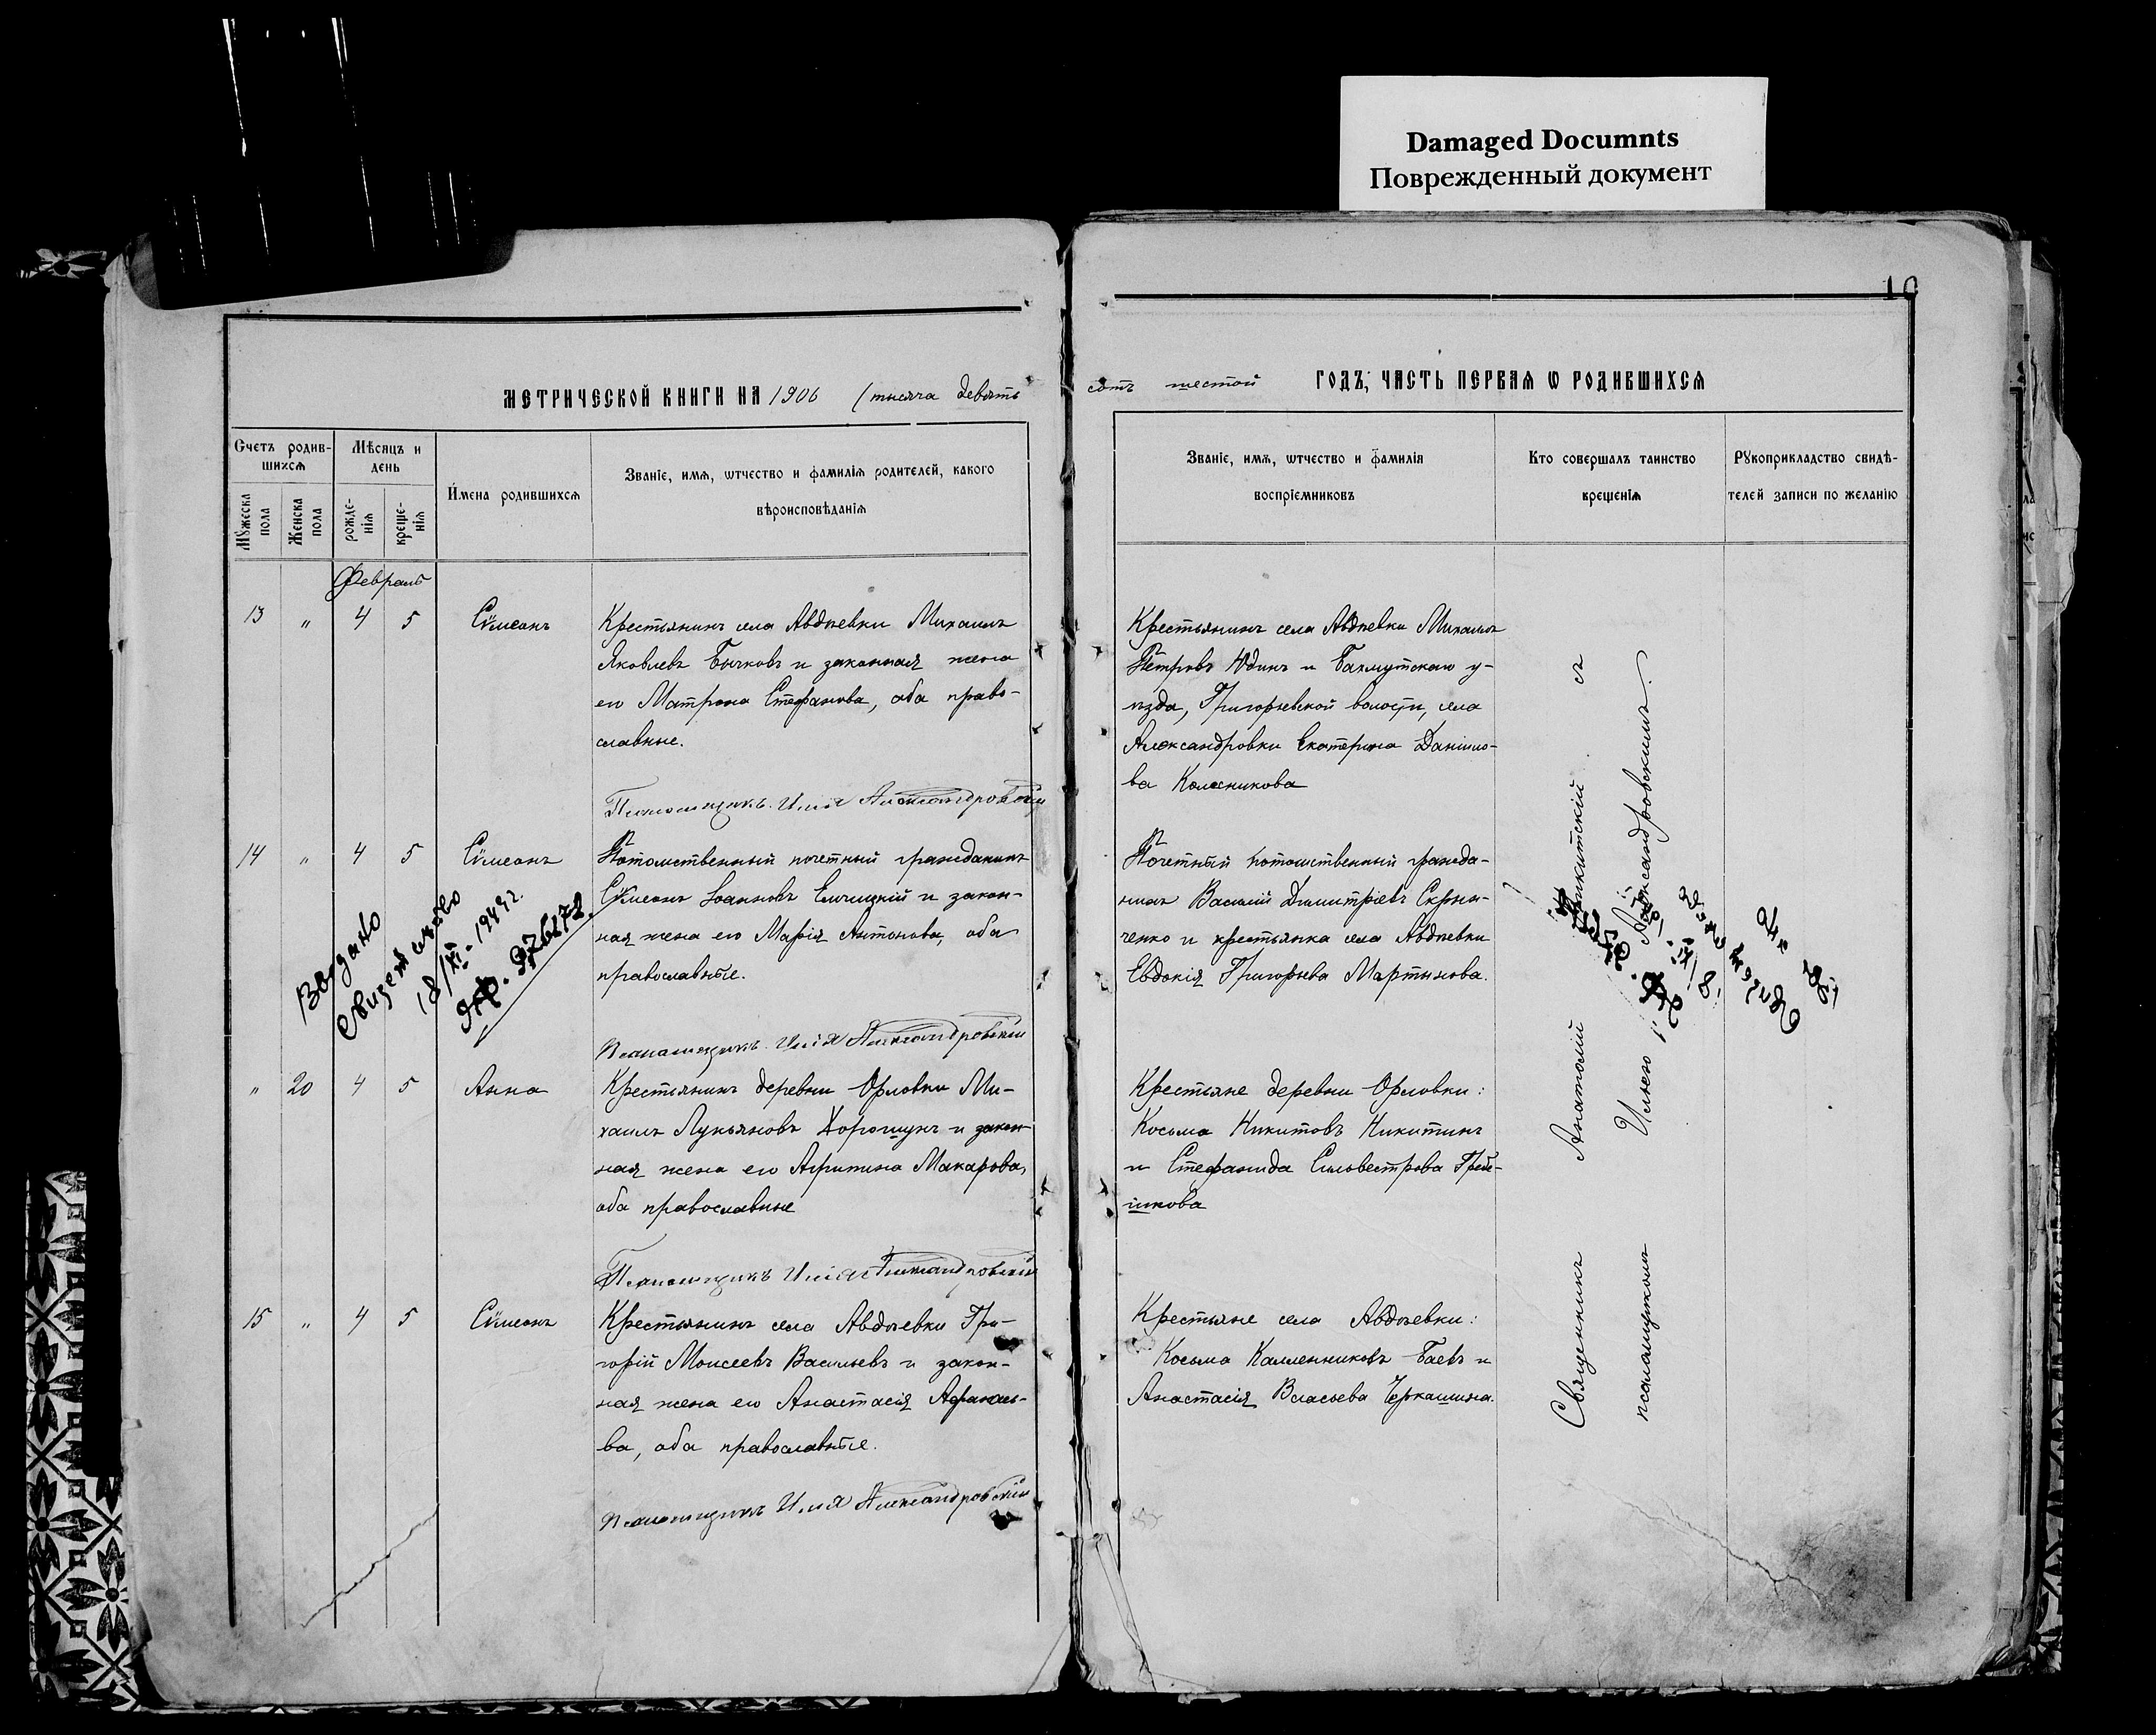 Damaged Documnts
Поврежденный документ
10
МЕТРИЧЕСКОЙ КНИГИ НА 1906 (тысяча девять
сотъ шестой ГОДЪ, ЧАСТЬ ПЕРВАѦ Ѡ РОДИВШИХСѦ
Счетъ родив-
шихсѧ
Мѣсяцъ и
день
Мꙋжеска
пола
Женска
пола
рожде-
нїѧ
креще-
нїѧ
Имена родившихсѧ
Званїе, имѧ, ѡтчество и фамилїѧ родителей, какого
вѣроисповѣданїѧ
Званїе, имѧ, ѡтчество и фамилїѧ
воспрїемниковъ
Кто совершалъ таинство
крещенїѧ
Рꙋкоприкладство свидѣ-
телей записи по желанїю
Февраль
13 " 4 5 Сѵмеонъ
Крестьянинъ села Авдѣевки Михаилъ
Яковлевъ Бычковъ и законная жена
его Матрона Стефанова, оба право-
славные.
Псаломщикъ Илія Александровскій
Крестьянинъ села Авдѣевки Михаилъ
Петровъ Юдинъ и Бахмутскаго у-
ѣзда, Григорьевской волости, села
Александровки Екатерина Данило-
ва Колесникова
14 " 4 5 Сѵмеонъ
Потомственный почетный гражданинъ
Сѵмеонъ Іоанновъ и закон-
ная жена его Марія Антонова, оба
православные.
Псаломщикъ Илія Александровскій
Почетный потомственный гражда-
нинъ Василій Димитріевъ Скрын-
ченко и крестьянка села Авдѣевки
Евдокія Григорьева Мартынова.
Выдано
свидетельство
18/XI-1949г.
" 20 4 5 Анна
Крестьянинъ деревни Орловки Ми-
хаилъ Лукьяновъ Дорошукъ и закон-
ная жена его Агрипина Макарова,
оба православные
Псаломщикъ Илія Александровскій
Крестьяне деревни Орловки:
Косьма Никитовъ Никитинъ
и Стефанида Сильвестрова Грей-
шкова
15 " 4 5 Сѵмеонъ
Крестьянинъ села Авдѣевки Гри-
горій Моисеевъ Васильевъ и закон-
ная жена его Анастасія Афанась-
ва, оба православные.
Псаломщикъ Илія Александровскій
Крестьяне села Авдѣевки:
Косьма Калленниковъ Баевъ и
Анастасія Власьева Черкашина.
Священникъ Анатолій Никитскій съ
псаломщикомъ Ильею Александровскимъ.